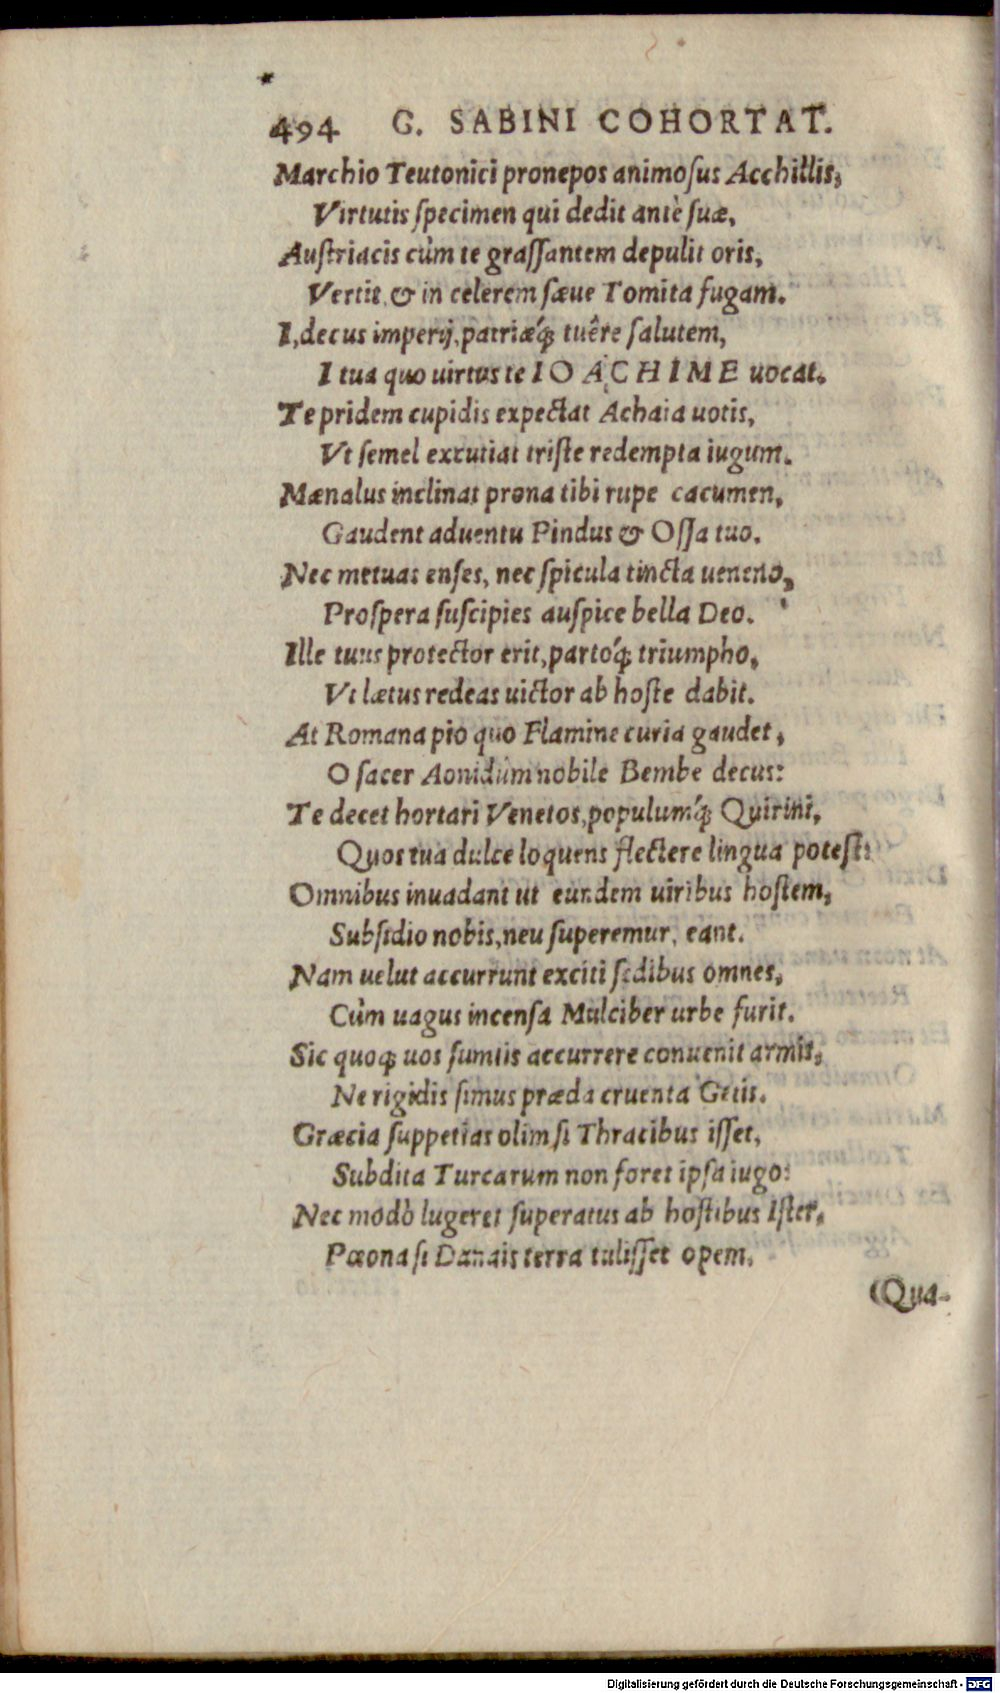 494 G. SABINI COHORTAT.
Marchio Teutonici pronepos animoſus Acchillis,
Virtutis ſpecimen qui dedit antè ſuæ,
Auſtriacis cùm te graſſantem depulit oris,
Vertit & in celerem ſæue Tomita fugam.
I, decus imperij, patriæq́; tuêre ſalutem,
I tua quo uirtus te IOACHIME uocat.
Te pridem cupidis expectat Achaia uotis,
Vt ſemel excutiat triſte redempta iugum.
Mænalus inclinat prona tibi rupe cacumen,
Gaudent aduentu Pindus & Oſſa tuo.
Nec metuas enſes, nec ſpicula tincta ueneno,
Proſpera ſuſcipies auſpice bella Deo.
Ille tuus protector erit, partoq́; triumpho,
Vt lætus redeas uictor ab hoſte dabit.
At Romana pio quo Flamine curia gaudet,
O ſacer Aonidùm nobile Bembe decus:
Te decet hortari Venetos, populumq́; Quirini,
Quos tua dulce loquens flectere lingua poteſt:
Omnibus inuadant ut eundem uiribus hoſtem,
Subſidio nobis, neu ſuperemur, eant.
Nam uelut accurrunt exciti ſedibus omnes,
Cùm uagus incenſa Mulciber urbe furit.
Sic quoq; uos ſumtis accurrere conuenit armis,
Ne rigidis ſimus præda cruenta Getis.
Græcia ſuppetias olim ſi Thracibus iſſet,
Subdita Turcarum non foret ipſa iugo:
Nec modò lugeret ſuperatus ab hoſtibus Iſter,
Pœona ſi Danais terra tuliſſet opem.
(Qua-
Digitalisierung gefördert durch die Deutsche Forschungsgemeinschaft - DFG